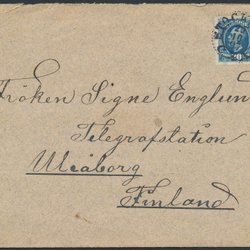 Fröken Signe Englun
Telegrafstation
Uleåborg
Finland
20